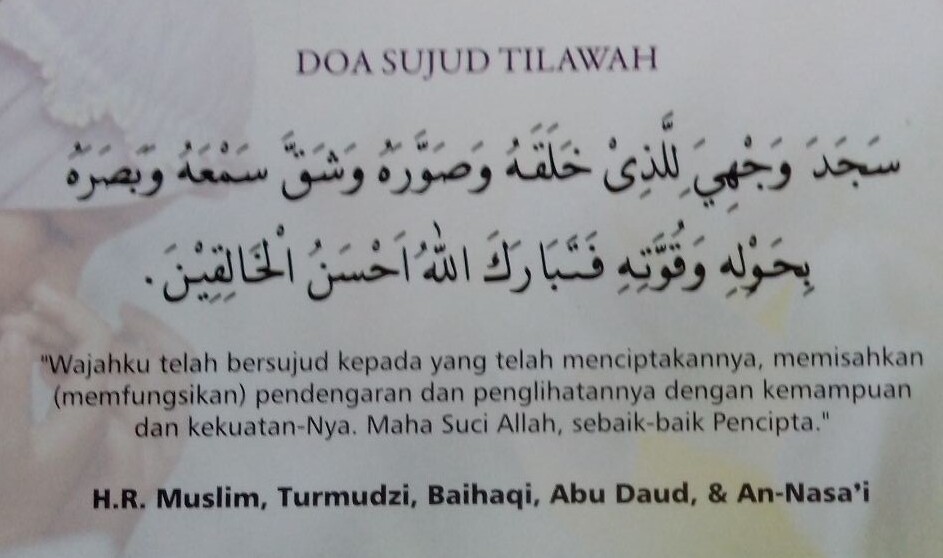 DOA SUJUD TILAWAH
سَجَدَ وَجْهِيَ لِلَّذِىْ خَلَقَهُ وَصَوَّرَهُ وَشَقَّ سَمْعَهُ وَبَصَرَهُ
بِحَوْلِهِ وَقُوَّتِهِ فَتَبَارَكَ اللّٰهُ اَحْسَنُ الْخَالِقِيْنَ.
"Wajahku telah bersujud kepada yang telah menciptakannya, memisahkan
(memfungsikan) pendengaran dan penglihatannya dengan kemampuan
dan kekuatan-Nya. Maha Suci Allah, sebaik-baik Pencipta."
H.R. Muslim, Turmudzi, Baihaqi, Abu Daud, & An-Nasa'i